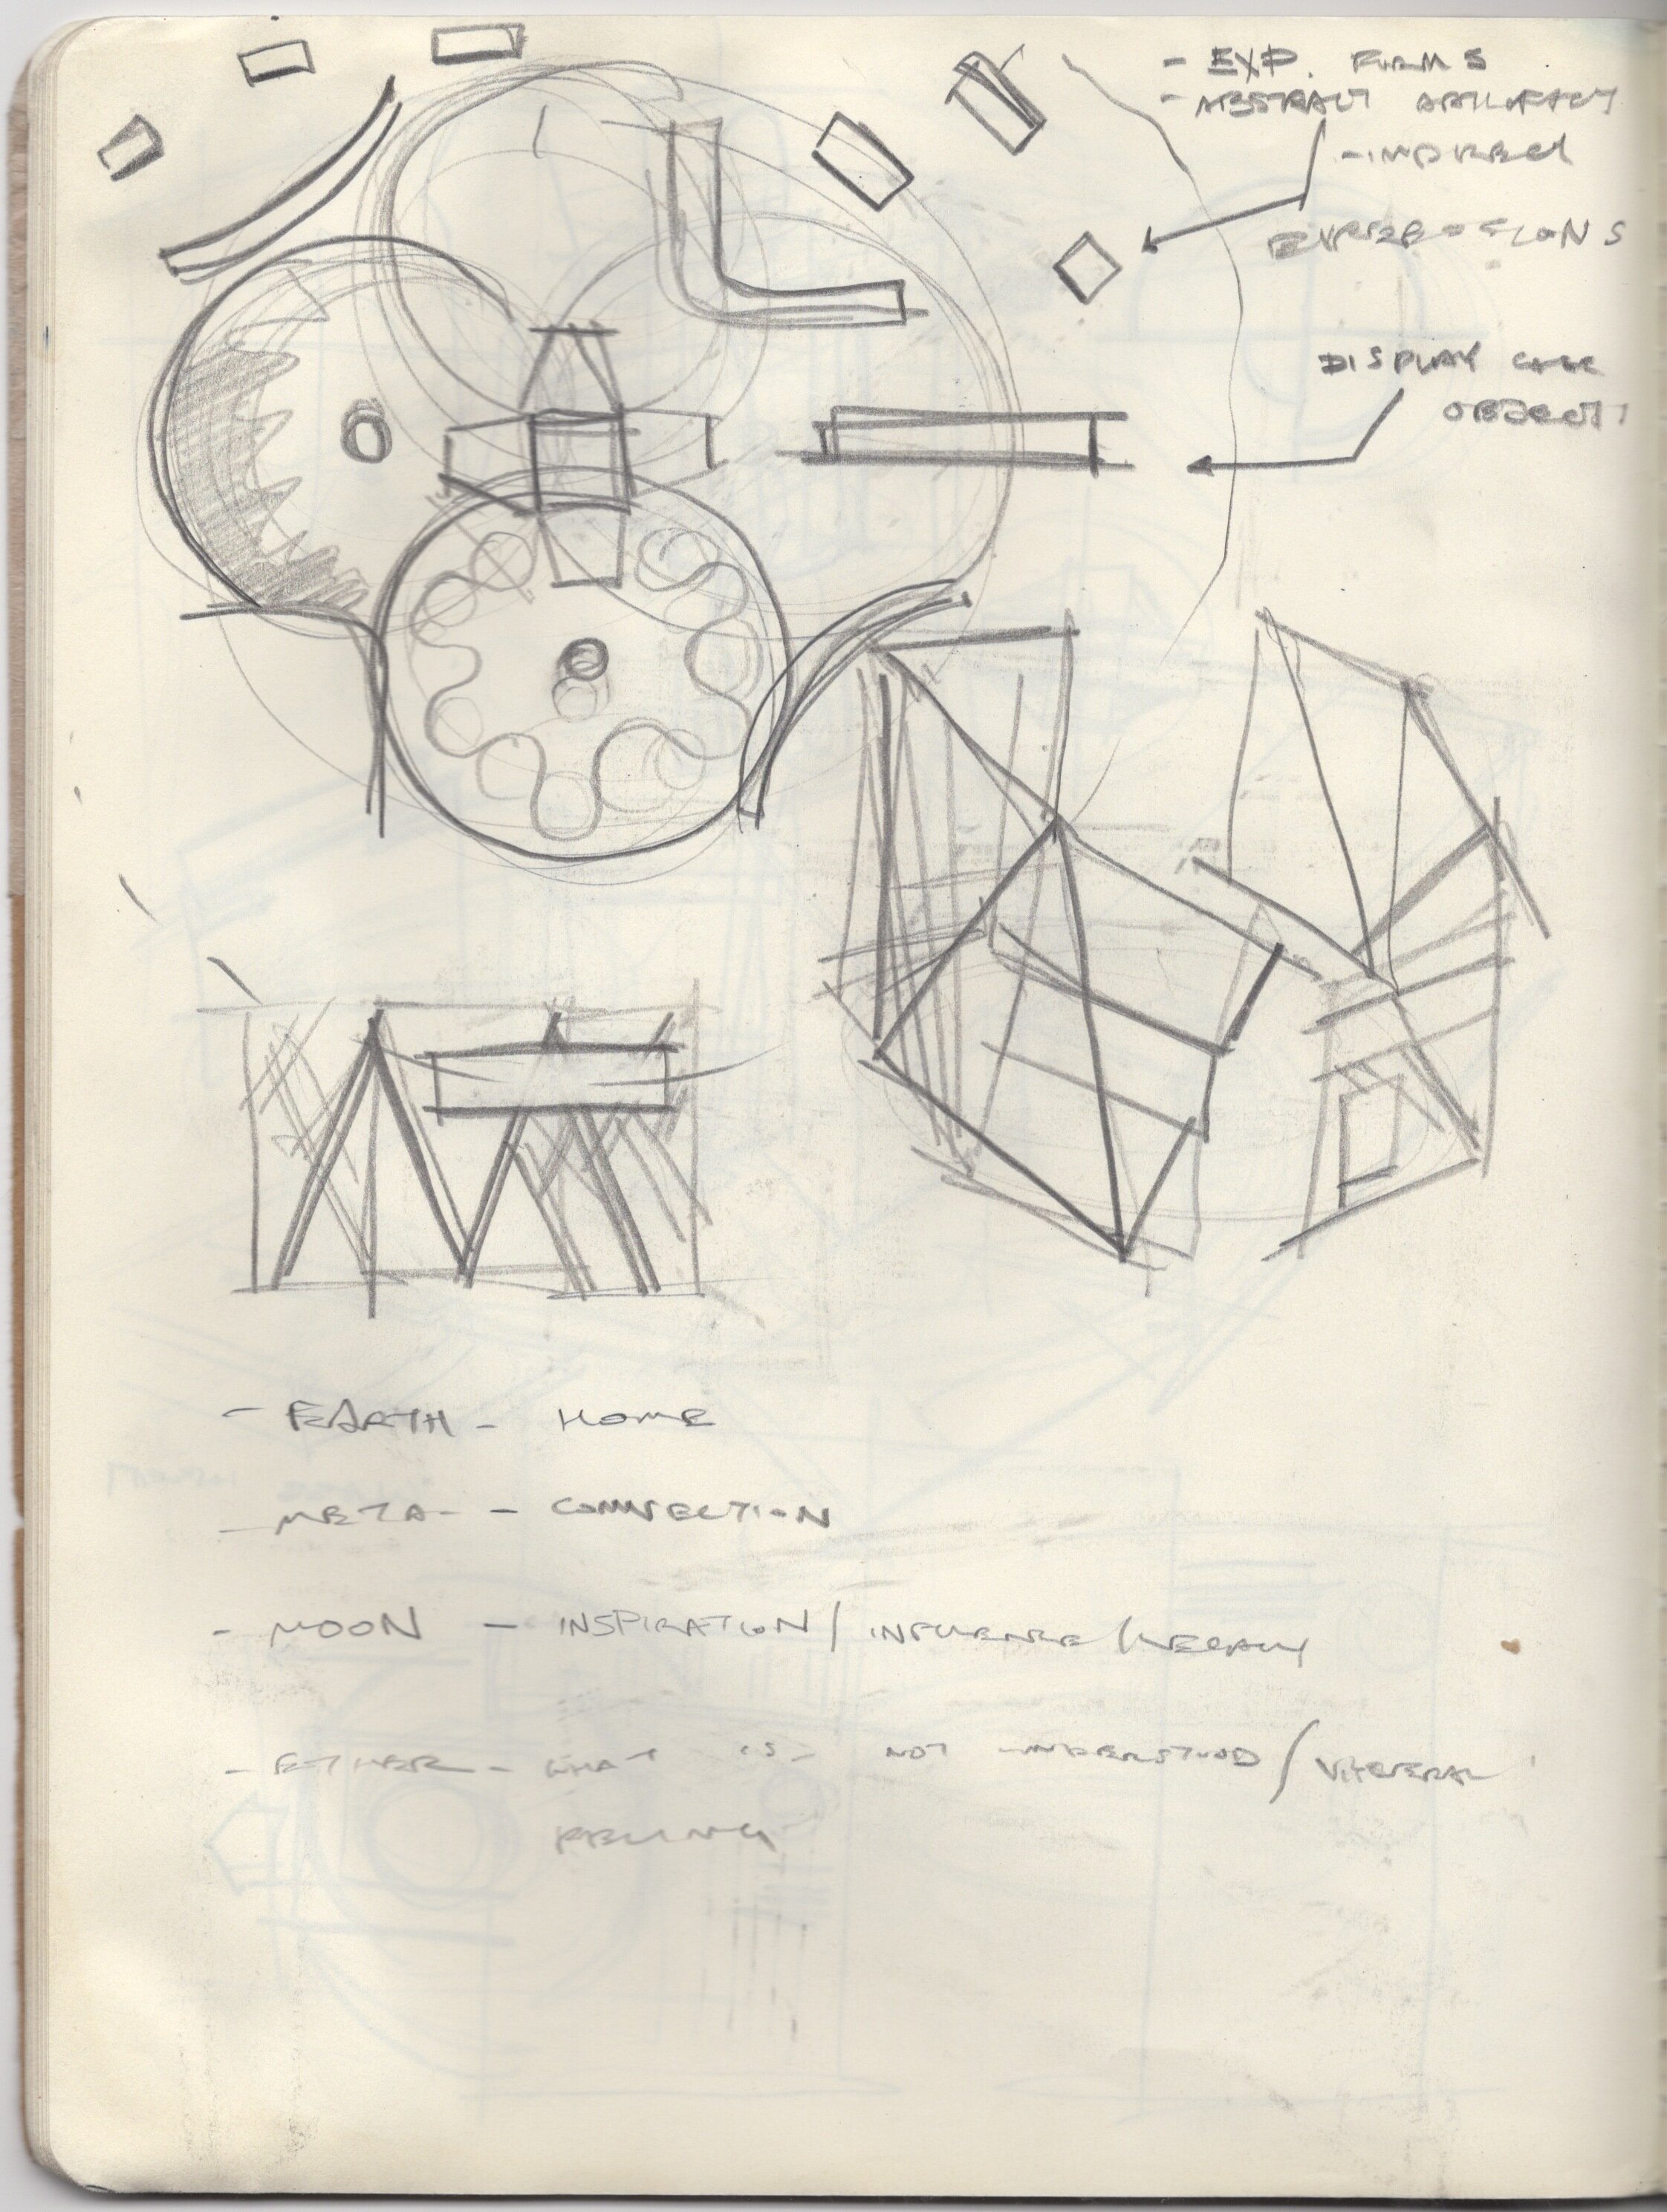 - EXP. FORMS
- ABSTRACT ARTIFACT
DISPLAY CASE
OBJECT
- EARTH - HOME
- META - CONNECTION
- MOON - INSPIRATION / INFLUENCE / LEGACY
- ETHER - WHAT IS NOT UNDERSTOOD / VISCERAL
FEELING